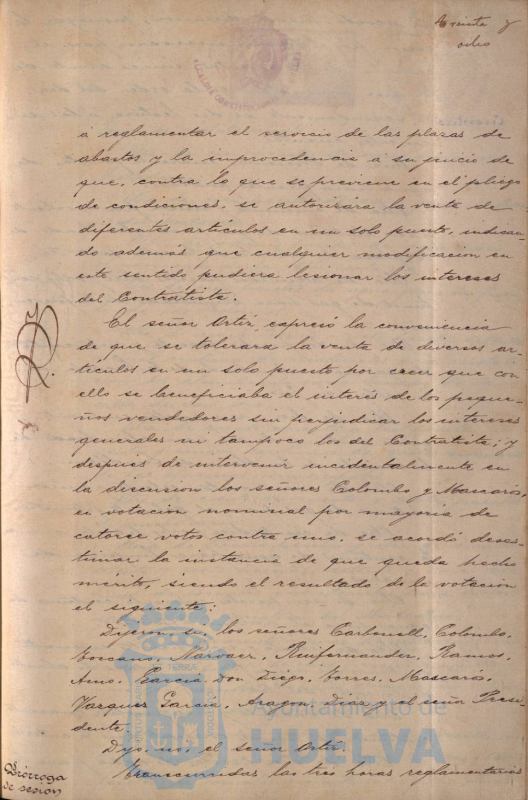 treinta y
ocho
á reglamentar el servicio de las plazas de
abastos y la improcedencia á su juicio de
que, contra lo que se previene en el pliego
de condiciones, se autorizára la venta de
diferentes artículos en un solo puesto, indican-
do además que cualquier modificacion en
este sentido pudiera lesionar los intereses
del Contratista.
El señor Ortíz, expresó la conveniencia
de que se tolerara la venta de diversos ar-
tículos en un solo puesto por creer que con
ello se beneficiaba el interés de los peque-
ños vendedores sin perjudicar los intereses
generales ni tampoco los del Contratista; y
después de intervenir incidentalmente en
la discusion los señores Colombo y Mascarós,
en votacion nominal por mayoría de
catorce votos contra uno, se acordó deses-
timar la instancia de que queda hecho
mérito, siendo el resultado de la votacion
el siguiente:
Dijeron si, los señores Carbonell, Colombo,
Toscano, Narvaez, Ruifernandez, Ramos,
García, Don Diego, Torres, Mascarós,
Vazquez García, Aragon, Diaz y el señor Presi-
dente.
Dijo, no, el señor Ortíz.
Transcurridas las tres horas reglamentarias
Prórroga
de sesión
Ayuntamiento de
HUELVA